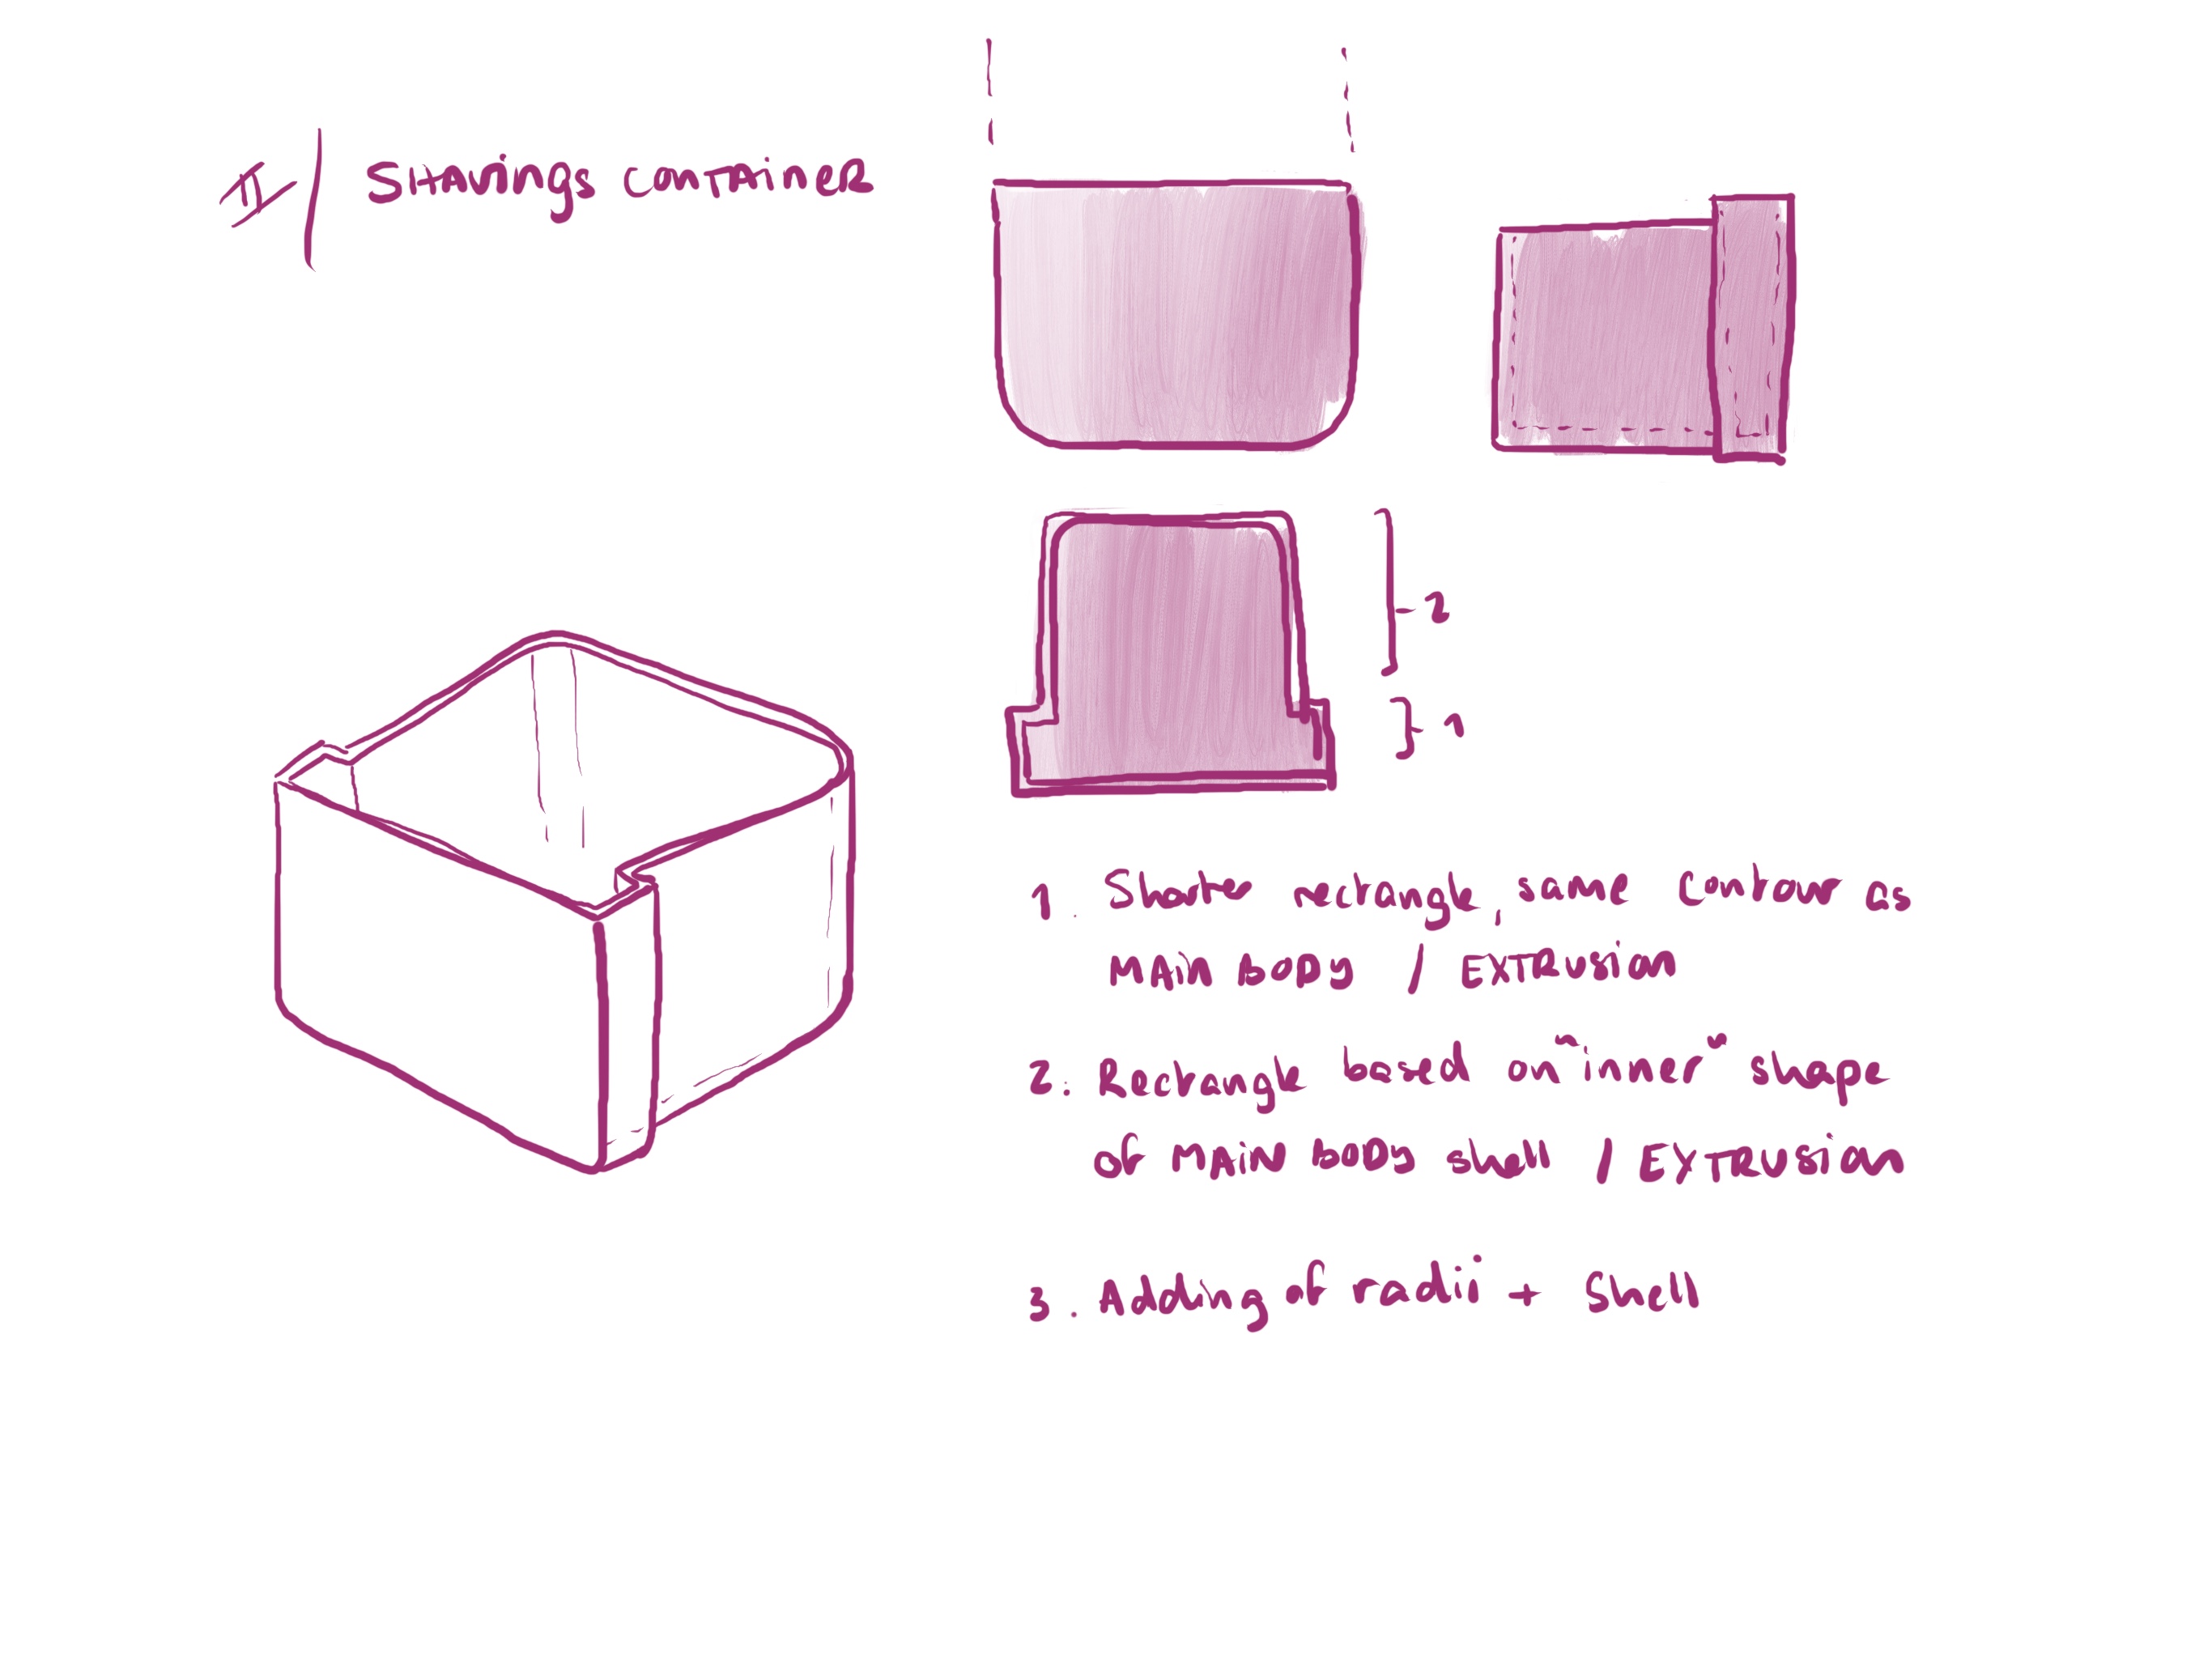 II/ SHAVINGS CONTAINER
2
1
1. Shorter rectangle, same contour as
MAIN BODY / EXTRUSION
2: Rectangle based on "inner" shape
of MAIN BODY shell / EXTRUSION
3. Adding of radii + Shell